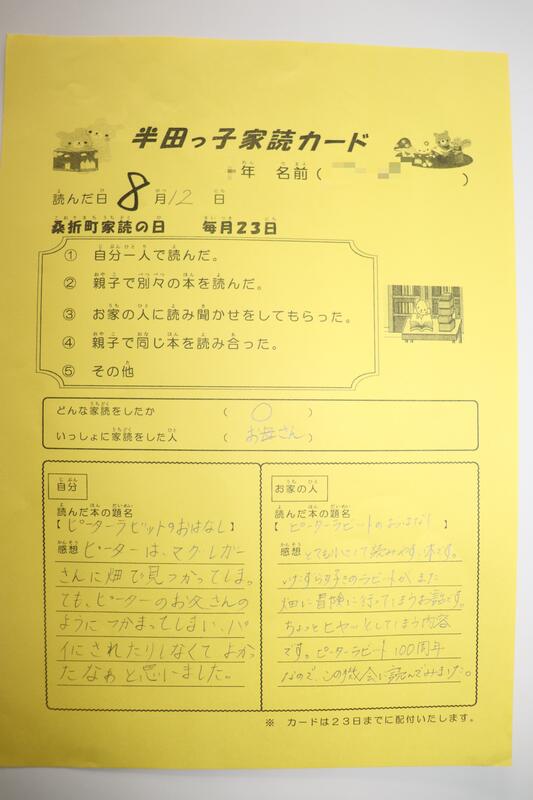 半田っ子家読カード
年 名前( )
読んだ日 8月12日
桑折町家読の日 毎月23日
① 自分一人で読んだ。
② 親子で別々の本を読んだ。
③ お家の人に読み聞かせをしてもらった。
④ 親子で同じ本を読み合った。
⑤ その他
どんな家読をしたか ( ○ )
いっしょに家読をした人 ( お母さん )
自分
読んだ本の題名
【ピーターラビットのおはなし】
感想 ピーターは、マグレガー
さんに畑で見つかってしまっ
ても、ピーターのお父さんの
ようにつかまってしまい、パ
イにされたりしなくてよかっ
たなぁと思いました。
お家の人
読んだ本の題名
【ピーターラビットのおはなし】
感想 とても小さくて読みやすい本です。
いたずら好きのラビットが、また
畑に冒険に行ってしまうお話です。
ちょっとヒヤッとしてしまう内容
です。ピーターラビット100周年
なので、この機会に読んでみました。
※ カードは23日までに配付いたします。